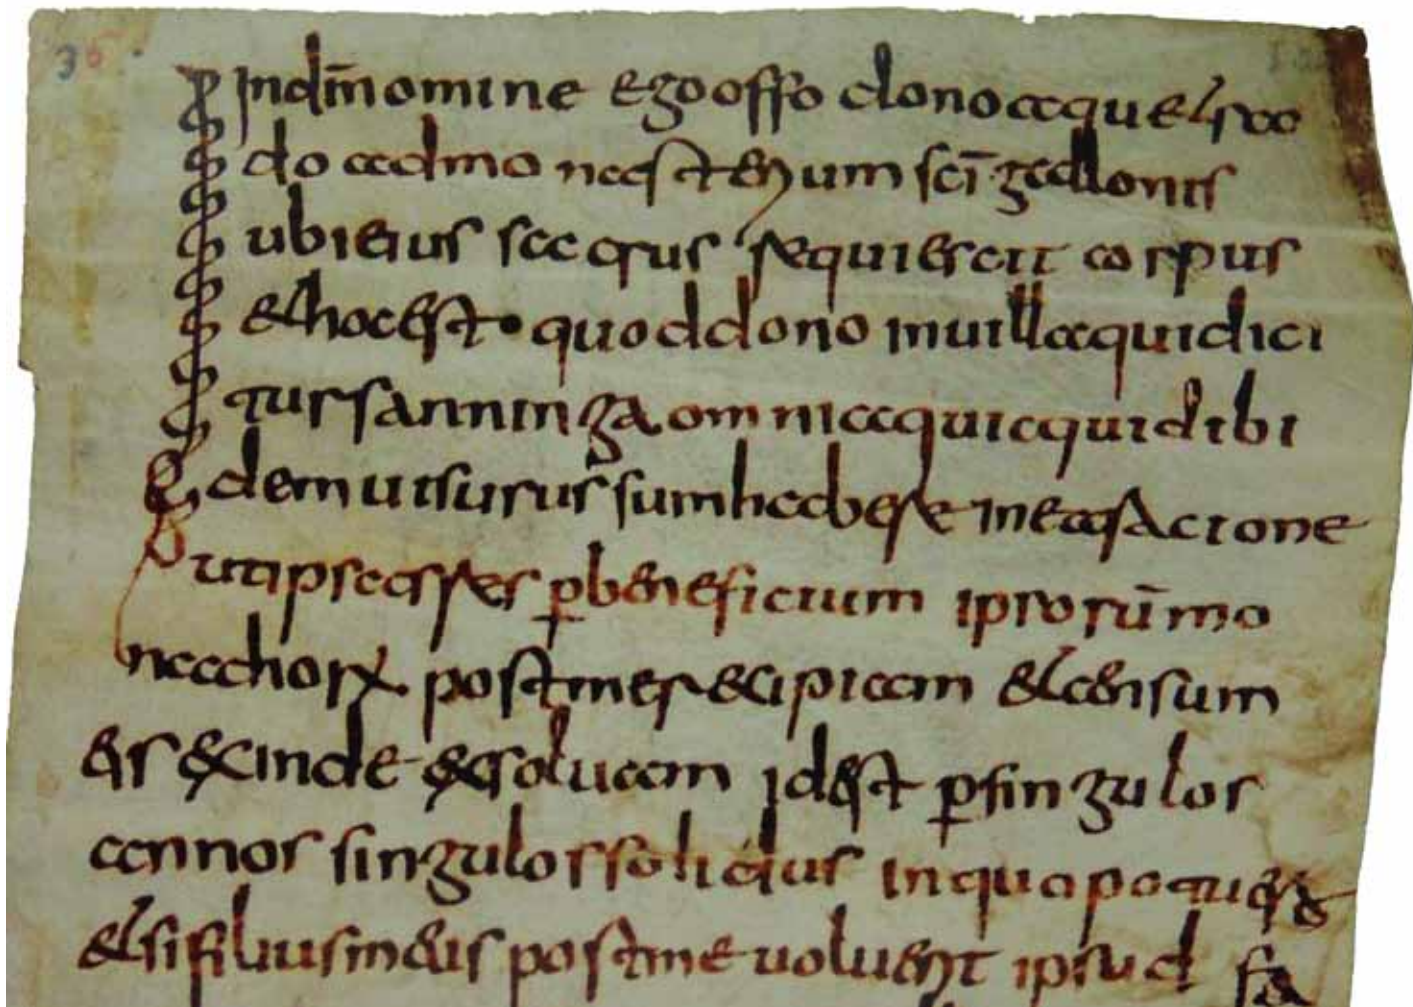 35
In dī nomine ego offo dono atque tra
do ad monasterium scī galloni
ubi eius sacrus requiescit corpus
et hoc est quod dono in uilla qui dici
tur sanninga omnia quicquid ibi
dem uisurus sum habere in ea racione
ut ipsas res per beneficium ipsorum mo
nachorum post me recipiam et censum
eis exinde exsoluam id est per singulos
annos singulos solidus in quo potuero
et si filius meus post me uoluerit ipsud